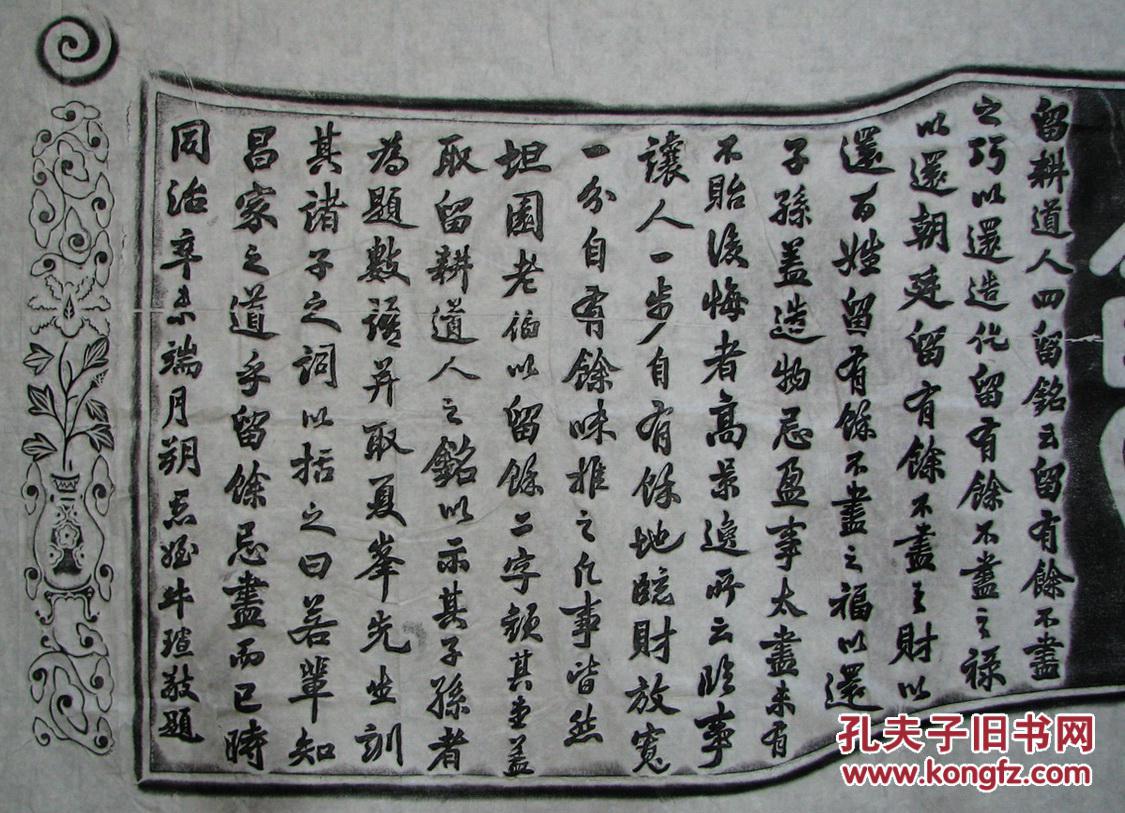 留耕道人四留銘云留有餘不盡
之巧以還造化留有餘不盡之祿
以還朝廷留有餘不盡之財以
還百姓留有餘不盡之福以還
子孫蓋造物忌盈事太盡未有
不貽後悔者高景逸所云臨事
讓人一步自有餘地臨財放寬
一分自有餘味推之凡事皆然
坦園老伯以留餘二字顏其堂蓋
取留耕道人之銘以示其子孫者
為題數語并取夏峯先生訓
其諸子之詞以括之曰若輩知
昌家之道乎留餘忌盡而已時
同治辛未端月朔愚姪牛瑄敬題
孔夫子旧书网
www.kongfz.com